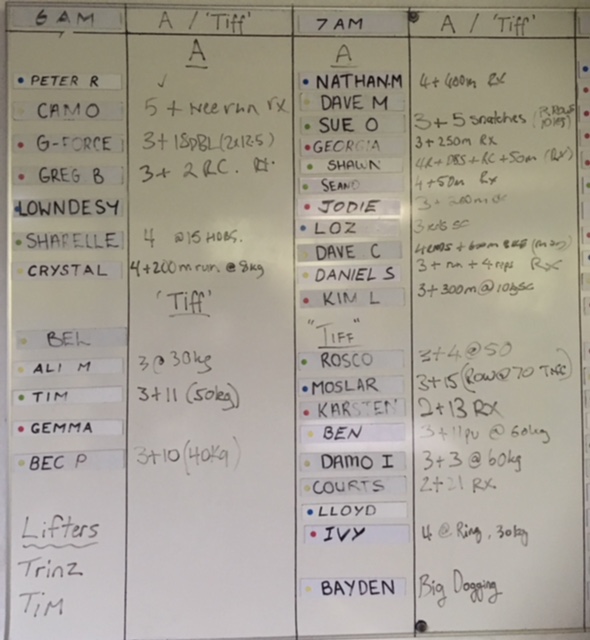 6 AM A / 'Tiff'
A
PETER R ✓
CAMO 5 + run rx
G-FORCE 3+ 15DBL (2x12.5)
GREG B 3+ 2 RC.
LOWNDESY
SHARELLE 4 @15 HDBS.
CRYSTAL 4+200m run. @8kg
'Tiff'
BEL
ALI M 3@30kg
TIM 3+11 (50kg)
GEMMA
BEC P 3+10 (40kg)
Lifters
Trinz
Tim
7 AM A / 'Tiff'
A
NATHAN.M 4+400m Rx
DAVE M
SUE O 3+5 snatches
GEORGIA 3+250m Rx
SHAUN 4R+DBS+RC+50m (Rx)
SEAN D 4+50m Rx
JODIE 3+200m
LOZ
DAVE C
DANIEL S 3+ run +4 reps Rx
KIM L 3+300m@10kg
"TIFF"
ROSCO 3+4@50
MOSLAR 3+15 (Row@70
KARSTEN 2+13 RX
BEN 3+11pu @ 60kg
DAMO I 3+3 @ 60kg
COURTS 2+21 RX
LLOYD
IVY 4 @ Ring, 30kg
BAYDEN Big Dogging